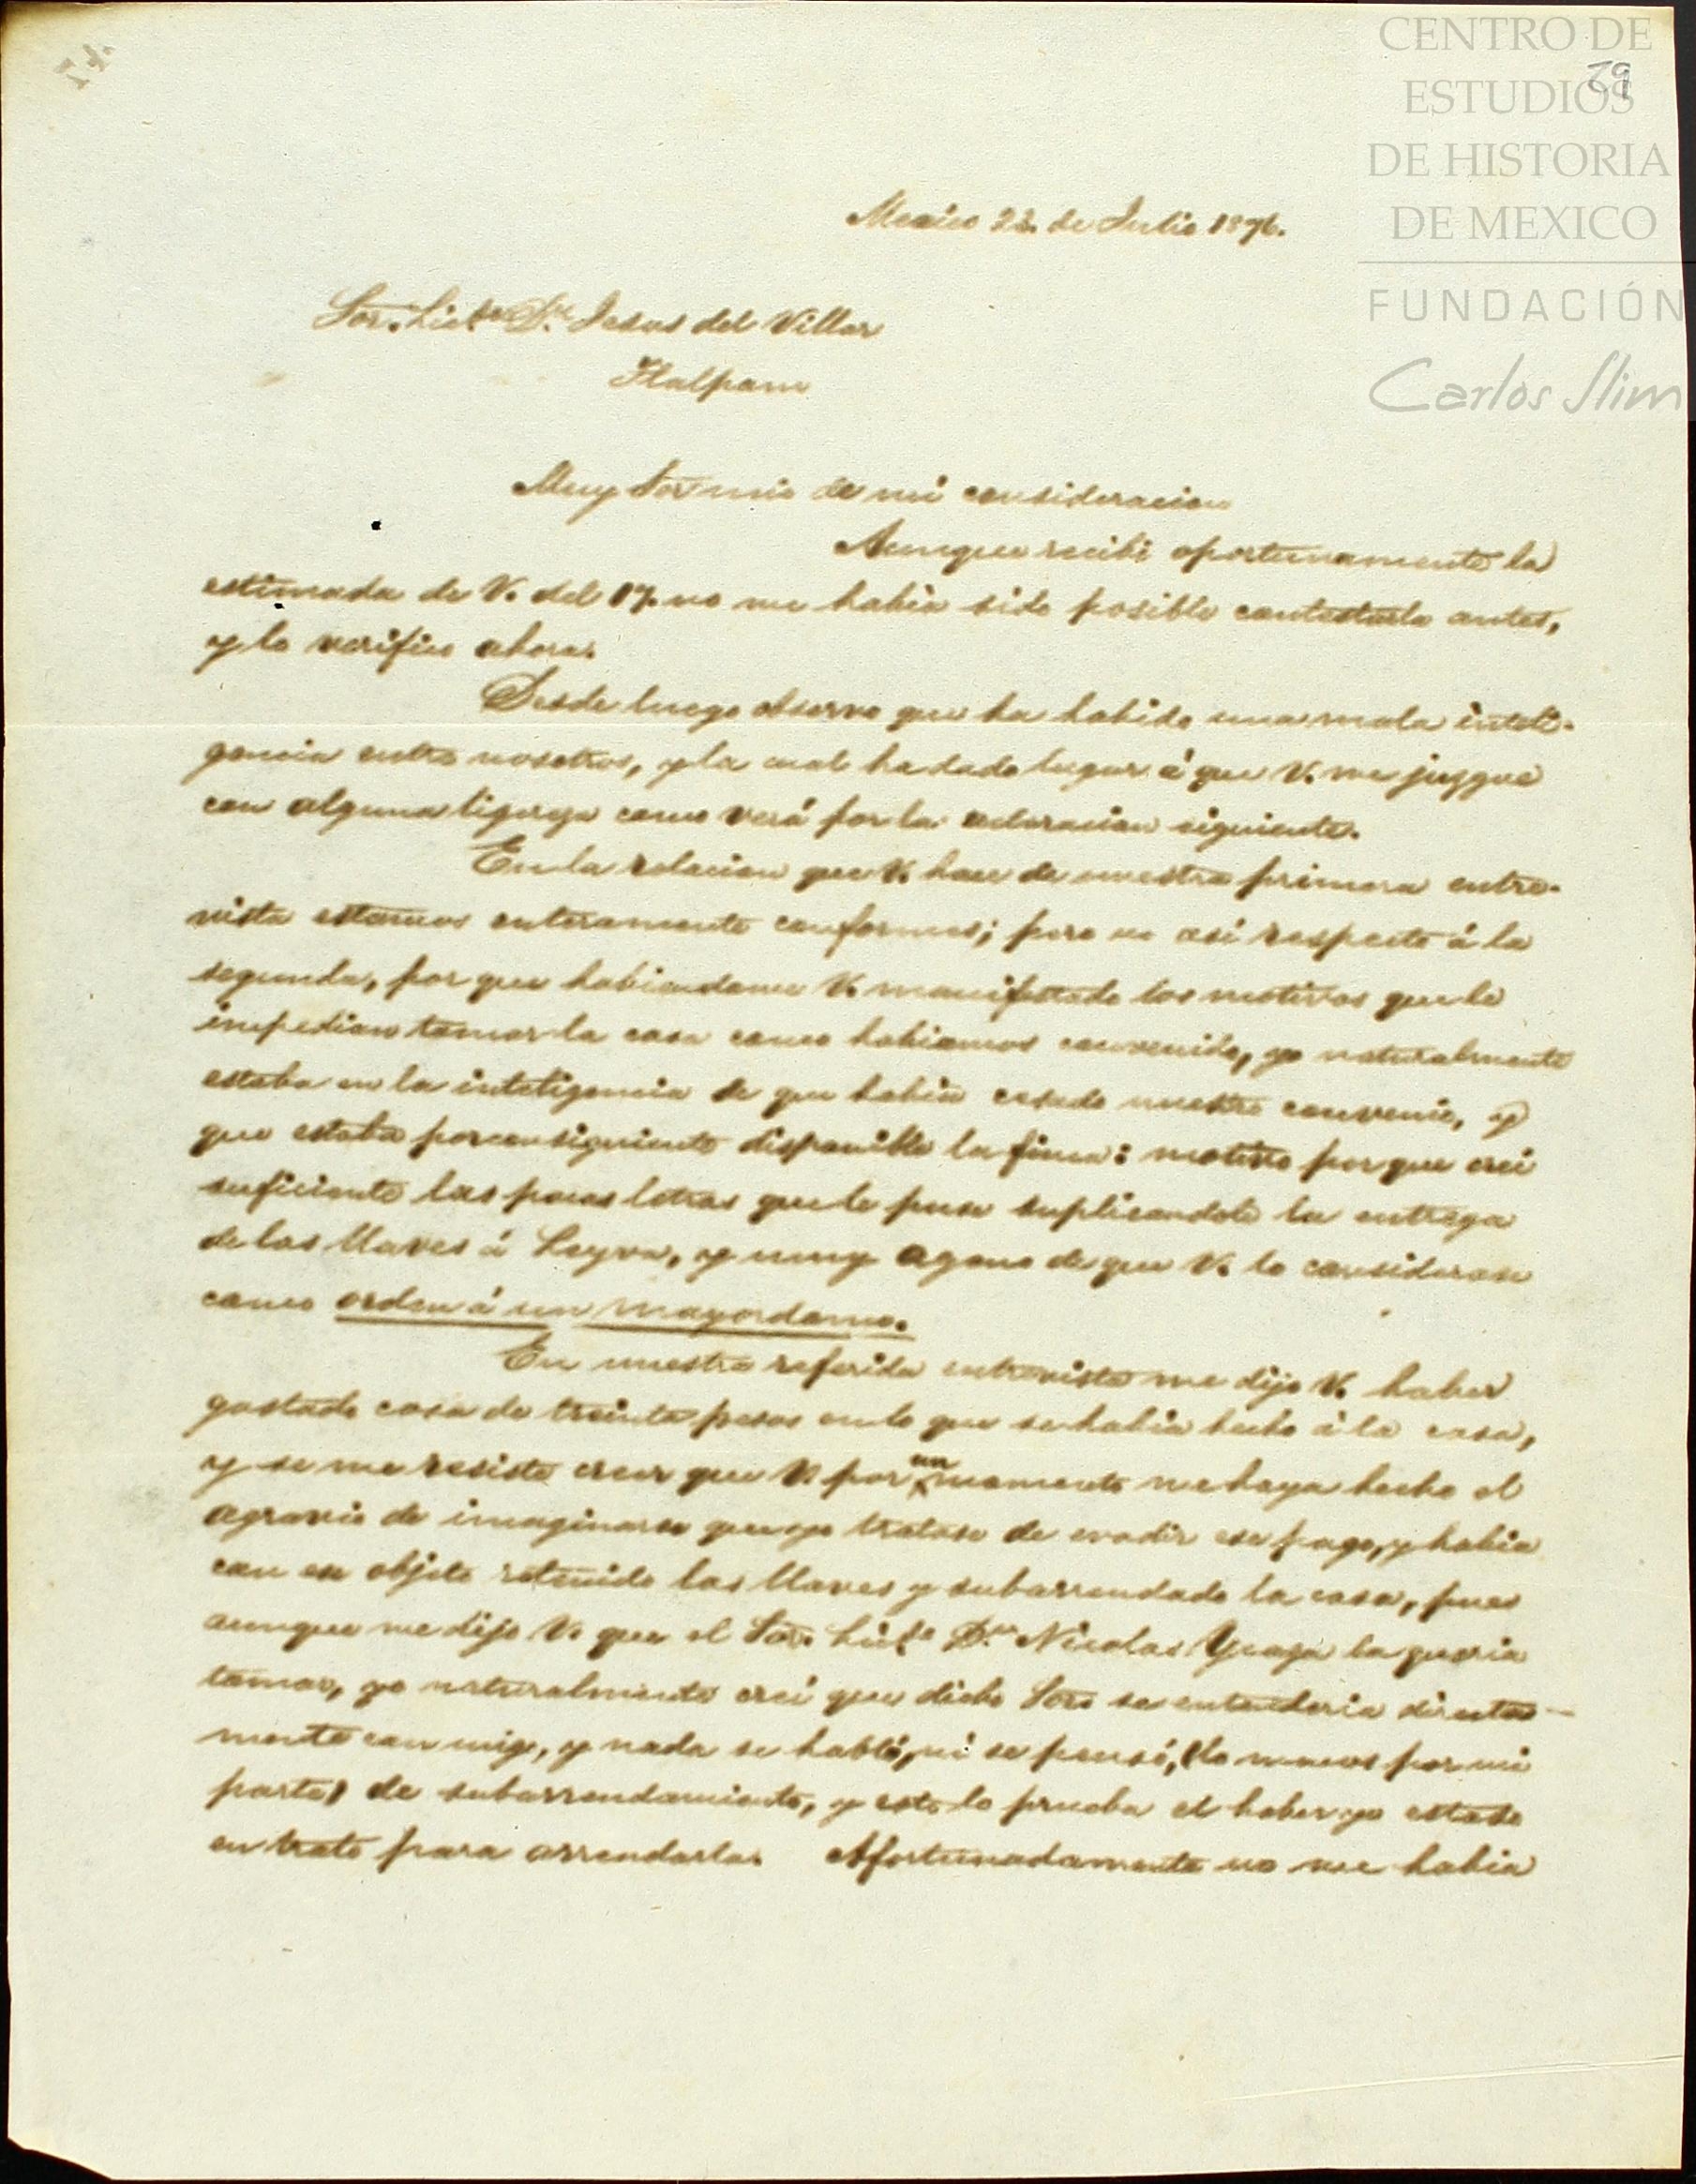 CENTRO DE
ESTUDIOS
DE HISTORIA
DE MEXICO
FUNDACIÓN
Carlos Slim
39
Mexico 22. de Julio 1876.
Sor. Licdo. Dn. Jesus del Villar
Tlalpam
Muy Sor mio de mi consideracion
Aunque recibi oportunamente la
estimada de V. del 17. no me habia sido posible contestarla antes,
y lo verifico ahora.
Desde luego observo que ha habido una mala inteli-
gencia entre nosotros, y la cual ha dado lugar á que V. me juzgue
con alguna ligereza como verá por la aclaracion siguiente.
En la relacion que V. hace de nuestra primera entre-
vista estamos enteramente conformes; pero no asi respecto á la
segunda, por que habiendome V. manifestado los motivos que le
impedian tomar la casa como habiamos convenido, yo naturalmente
estaba en la inteligencia de que habia cesado nuestro convenio, y
que estaba por consiguiente disponible la finca: motivo por que crei
suficiente las pocas letras que le puse suplicandole la entrega
de las llaves á Leyva, y muy ageno de que V. lo considerase
como orden á un mayordomo.
En nuestra referida entrevista me dijo V. haber
gastado cosa de treinta pesos en lo que se habia hecho á la casa,
y se me resiste creer que V. por un momento me haya hecho el
agravio de imaginarse que yo tratase de evadir ese pago, y habia
con ese objeto retenido las llaves y subarrendado la casa, pues
aunque me dijo V. que el Sor. Licdo. Dn. Nicolas Ycaza la queria
tomar, yo naturalmente crei que dicho Sor. se entenderia directa-
mente con migo, y nada se habló, ni se pensó, (lo menos por mi
parte) de subarrendamiento, y esto lo prueba el haber yo estado
en trato para arrendarla. Afortunadamente no me habia